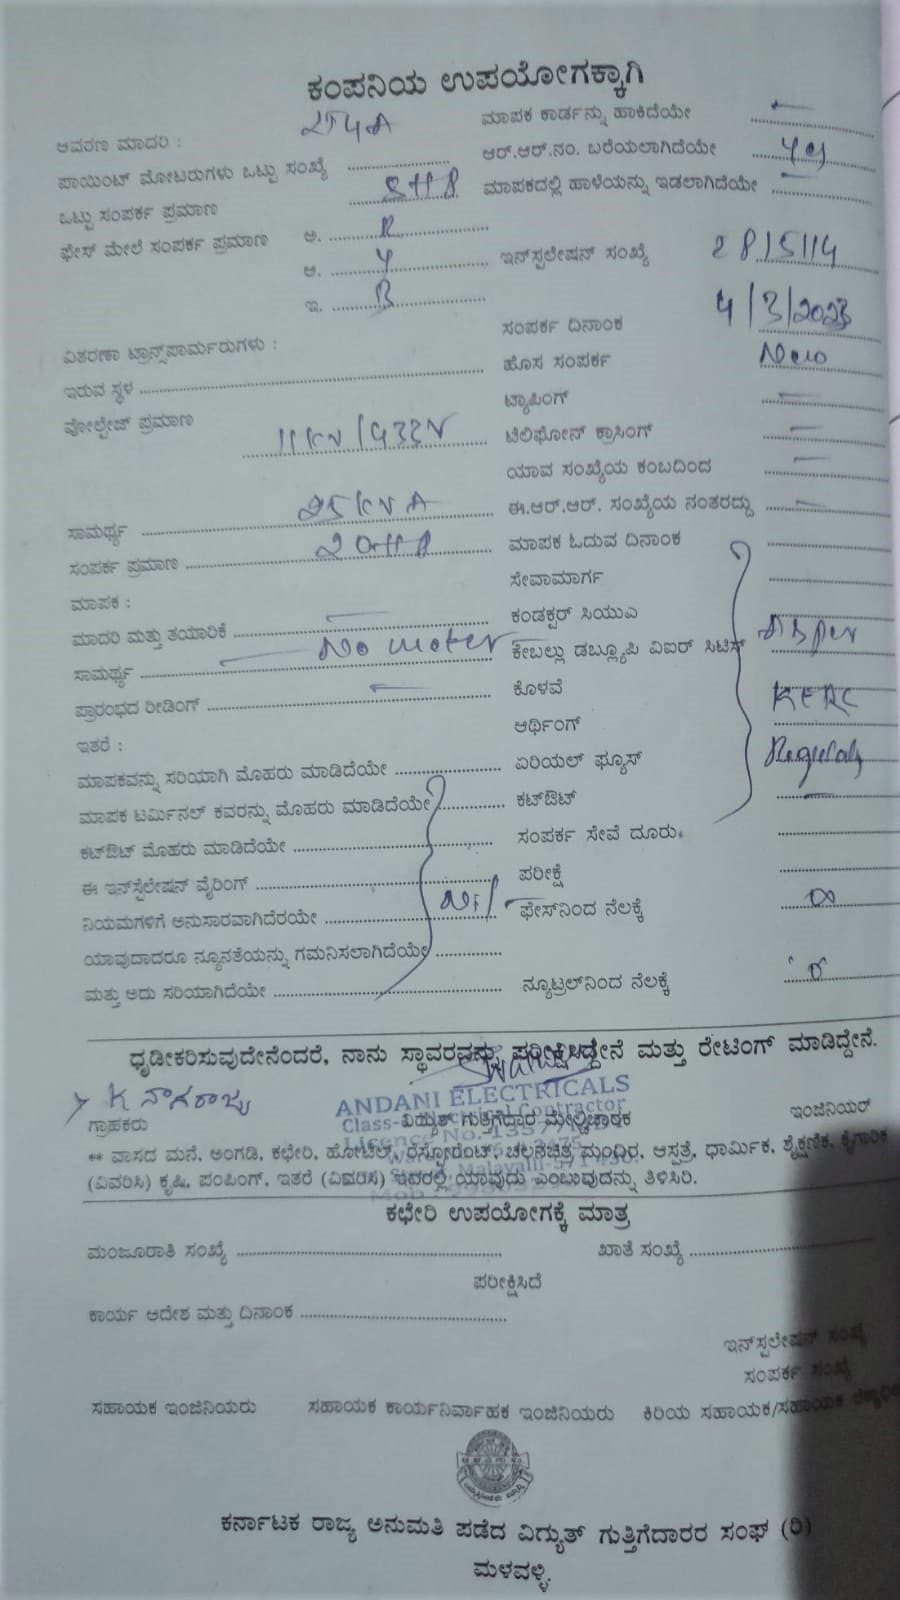 ಕಂಪನಿಯ ಉಪಯೋಗಕ್ಕಾಗಿ
ಆವರಣ ಮಾದರಿ : ಮಾಪಕ ಕಾರ್ಡನ್ನು ಹಾಕಿದೆಯೇ
ಪಾಯಿಂಟ್ ಮೋಟರುಗಳು ಒಟ್ಟು ಸಂಖ್ಯೆ ಆರ್.ಆರ್.ನಂ. ಬರೆಯಲಾಗಿದೆಯೇ
ಒಟ್ಟು ಸಂಪರ್ಕ ಪ್ರಮಾಣ ಮಾಪಕದಲ್ಲಿ ಹಾಳೆಯನ್ನು ಇಡಲಾಗಿದೆಯೇ
ಫೇಸ್ ಮೇಲೆ ಸಂಪರ್ಕ ಪ್ರಮಾಣ ಅ. R
ಆ. Y ಇನ್‌ಸ್ಪಲೇಷನ್ ಸಂಖ್ಯೆ 28/5114
ಇ. B
ಸಂಪರ್ಕ ದಿನಾಂಕ 4/3/2023
ವಿತರಣಾ ಟ್ರಾನ್ಸ್‌ಪಾರ್ಮರುಗಳು : ಹೊಸ ಸಂಪರ್ಕ New
ಇರುವ ಸ್ಥಳ ಟ್ಯಾಪಿಂಗ್ —
ವೋಲ್ಟೇಜ್ ಪ್ರಮಾಣ 11KV/433V ಟೆಲಿಫೋನ್ ಕ್ರಾಸಿಂಗ್ —
ಯಾವ ಸಂಖ್ಯೆಯ ಕಂಬದಿಂದ —
ಸಾಮರ್ಥ್ಯ 25 KVA ಈ.ಆರ್.ಆರ್. ಸಂಖ್ಯೆಯ ನಂತರದ್ದು —
ಸಂಪರ್ಕ ಪ್ರಮಾಣ ಮಾಪಕ ಓದುವ ದಿನಾಂಕ
ಮಾಪಕ : ಸೇವಾಮಾರ್ಗ
ಮಾದರಿ ಮತ್ತು ತಯಾರಿಕೆ — ಕಂಡಕ್ಟರ್ ಸಿಯುಎ
ಸಾಮರ್ಥ್ಯ — No meter ಕೇಬಲ್ಲು ಡಬ್ಲ್ಯೂಪಿ ವಿಐಆರ್ ಸಿಟಿಸ್ As per
ಪ್ರಾರಂಭದ ರೀಡಿಂಗ್ — ಕೊಳವೆ KERC
ಇತರೆ : ಆರ್ಥಿಂಗ್
ಮಾಪಕವನ್ನು ಸರಿಯಾಗಿ ಮೊಹರು ಮಾಡಿದೆಯೇ ಏರಿಯಲ್ ಫ್ಯೂಸ್
ಮಾಪಕ ಟರ್ಮಿನಲ್ ಕವರನ್ನು ಮೊಹರು ಮಾಡಿದೆಯೇ ಕಟ್‌ಔಟ್
ಕಟ್‌ಔಟ್ ಮೊಹರು ಮಾಡಿದೆಯೇ ಸಂಪರ್ಕ ಸೇವೆ ದೂರು
ಈ ಇನ್‌ಸ್ಪೆಲೇಷನ್ ವೈರಿಂಗ್ ಪರೀಕ್ಷೆ
ನಿಯಮಗಳಿಗೆ ಅನುಸಾರವಾಗಿದೆರಯೇ Nil ಫೇಸ್‌ನಿಂದ ನೆಲಕ್ಕೆ
ಯಾವುದಾದರೂ ನ್ಯೂನತೆಯನ್ನು ಗಮನಿಸಲಾಗಿದೆಯೇ
ಮತ್ತು ಅದು ಸರಿಯಾಗಿದೆಯೇ ನ್ಯೂಟ್ರಲ್‌ನಿಂದ ನೆಲಕ್ಕೆ
ಧೃಡೀಕರಿಸುವುದೇನೆಂದರೆ, ನಾನು ಸ್ಥಾವರವನ್ನು ಪರೀಕ್ಷಿಸಿದ್ದೇನೆ ಮತ್ತು ರೇಟಿಂಗ್ ಮಾಡಿದ್ದೇನೆ.
K ನಾಗರಾಜ್ಯ
ANDANI ELECTRICALS
ಗ್ರಾಹಕರು ವಿದ್ಯುತ್ ಗುತ್ತಿಗೆದ್ದಾರ ಮೇಲ್ವಿಚಾರಕ ಇಂಜಿನಿಯರ್
** ವಾಸದ ಮನೆ, ಅಂಗಡಿ, ಕಛೇರಿ, ಹೋಟೆಲ್, ರೆಸ್ಟೋರೆಂಟ್, ಚಲನಚಿತ್ರ ಮಂದಿರ, ಆಸ್ಪತ್ರೆ, ಧಾರ್ಮಿಕ, ಶೈಕ್ಷಣಿಕ, ಕೈಗಾರಿಕ
(ವಿವರಿಸಿ) ಕೃಷಿ, ಪಂಪಿಂಗ್, ಇತರೆ (ವಿವರಿಸಿ) ಇವರಲ್ಲಿ ಯಾವುದು ಎಂಬುವುದನ್ನು ತಿಳಿಸಿರಿ.
ಕಛೇರಿ ಉಪಯೋಗಕ್ಕೆ ಮಾತ್ರ
ಮಂಜೂರಾತಿ ಸಂಖ್ಯೆ ಖಾತೆ ಸಂಖ್ಯೆ
ಪರೀಕ್ಷಿಸಿದೆ
ಕಾರ್ಯ ಆದೇಶ ಮತ್ತು ದಿನಾಂಕ
ಇನ್‌ಸ್ಪಲೇಷನ್ ಸಂಖ್ಯೆ
ಸಂಪರ್ಕ ಸಂಖ್ಯೆ
ಸಹಾಯಕ ಇಂಜಿನಿಯರು ಸಹಾಯಕ ಕಾರ್ಯನಿರ್ವಾಹಕ ಇಂಜಿನಿಯರು ಕಿರಿಯ ಸಹಾಯಕ/ಸಹಾಯಕ
ಕರ್ನಾಟಕ ರಾಜ್ಯ ಅನುಮತಿ ಪಡೆದ ವಿದ್ಯುತ್ ಗುತ್ತಿಗೆದಾರರ ಸಂಘ (ರಿ)
ಮಳವಳ್ಳಿ.